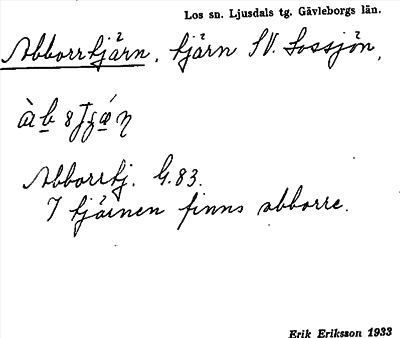 Los sn. Ljusdals tg. Gävleborgs län.
Abborrtjärn, tjärn SV. Lossjön,
Abborrtj. G.83.
I tjärnen finns abborre.
Erik Eriksson 1933